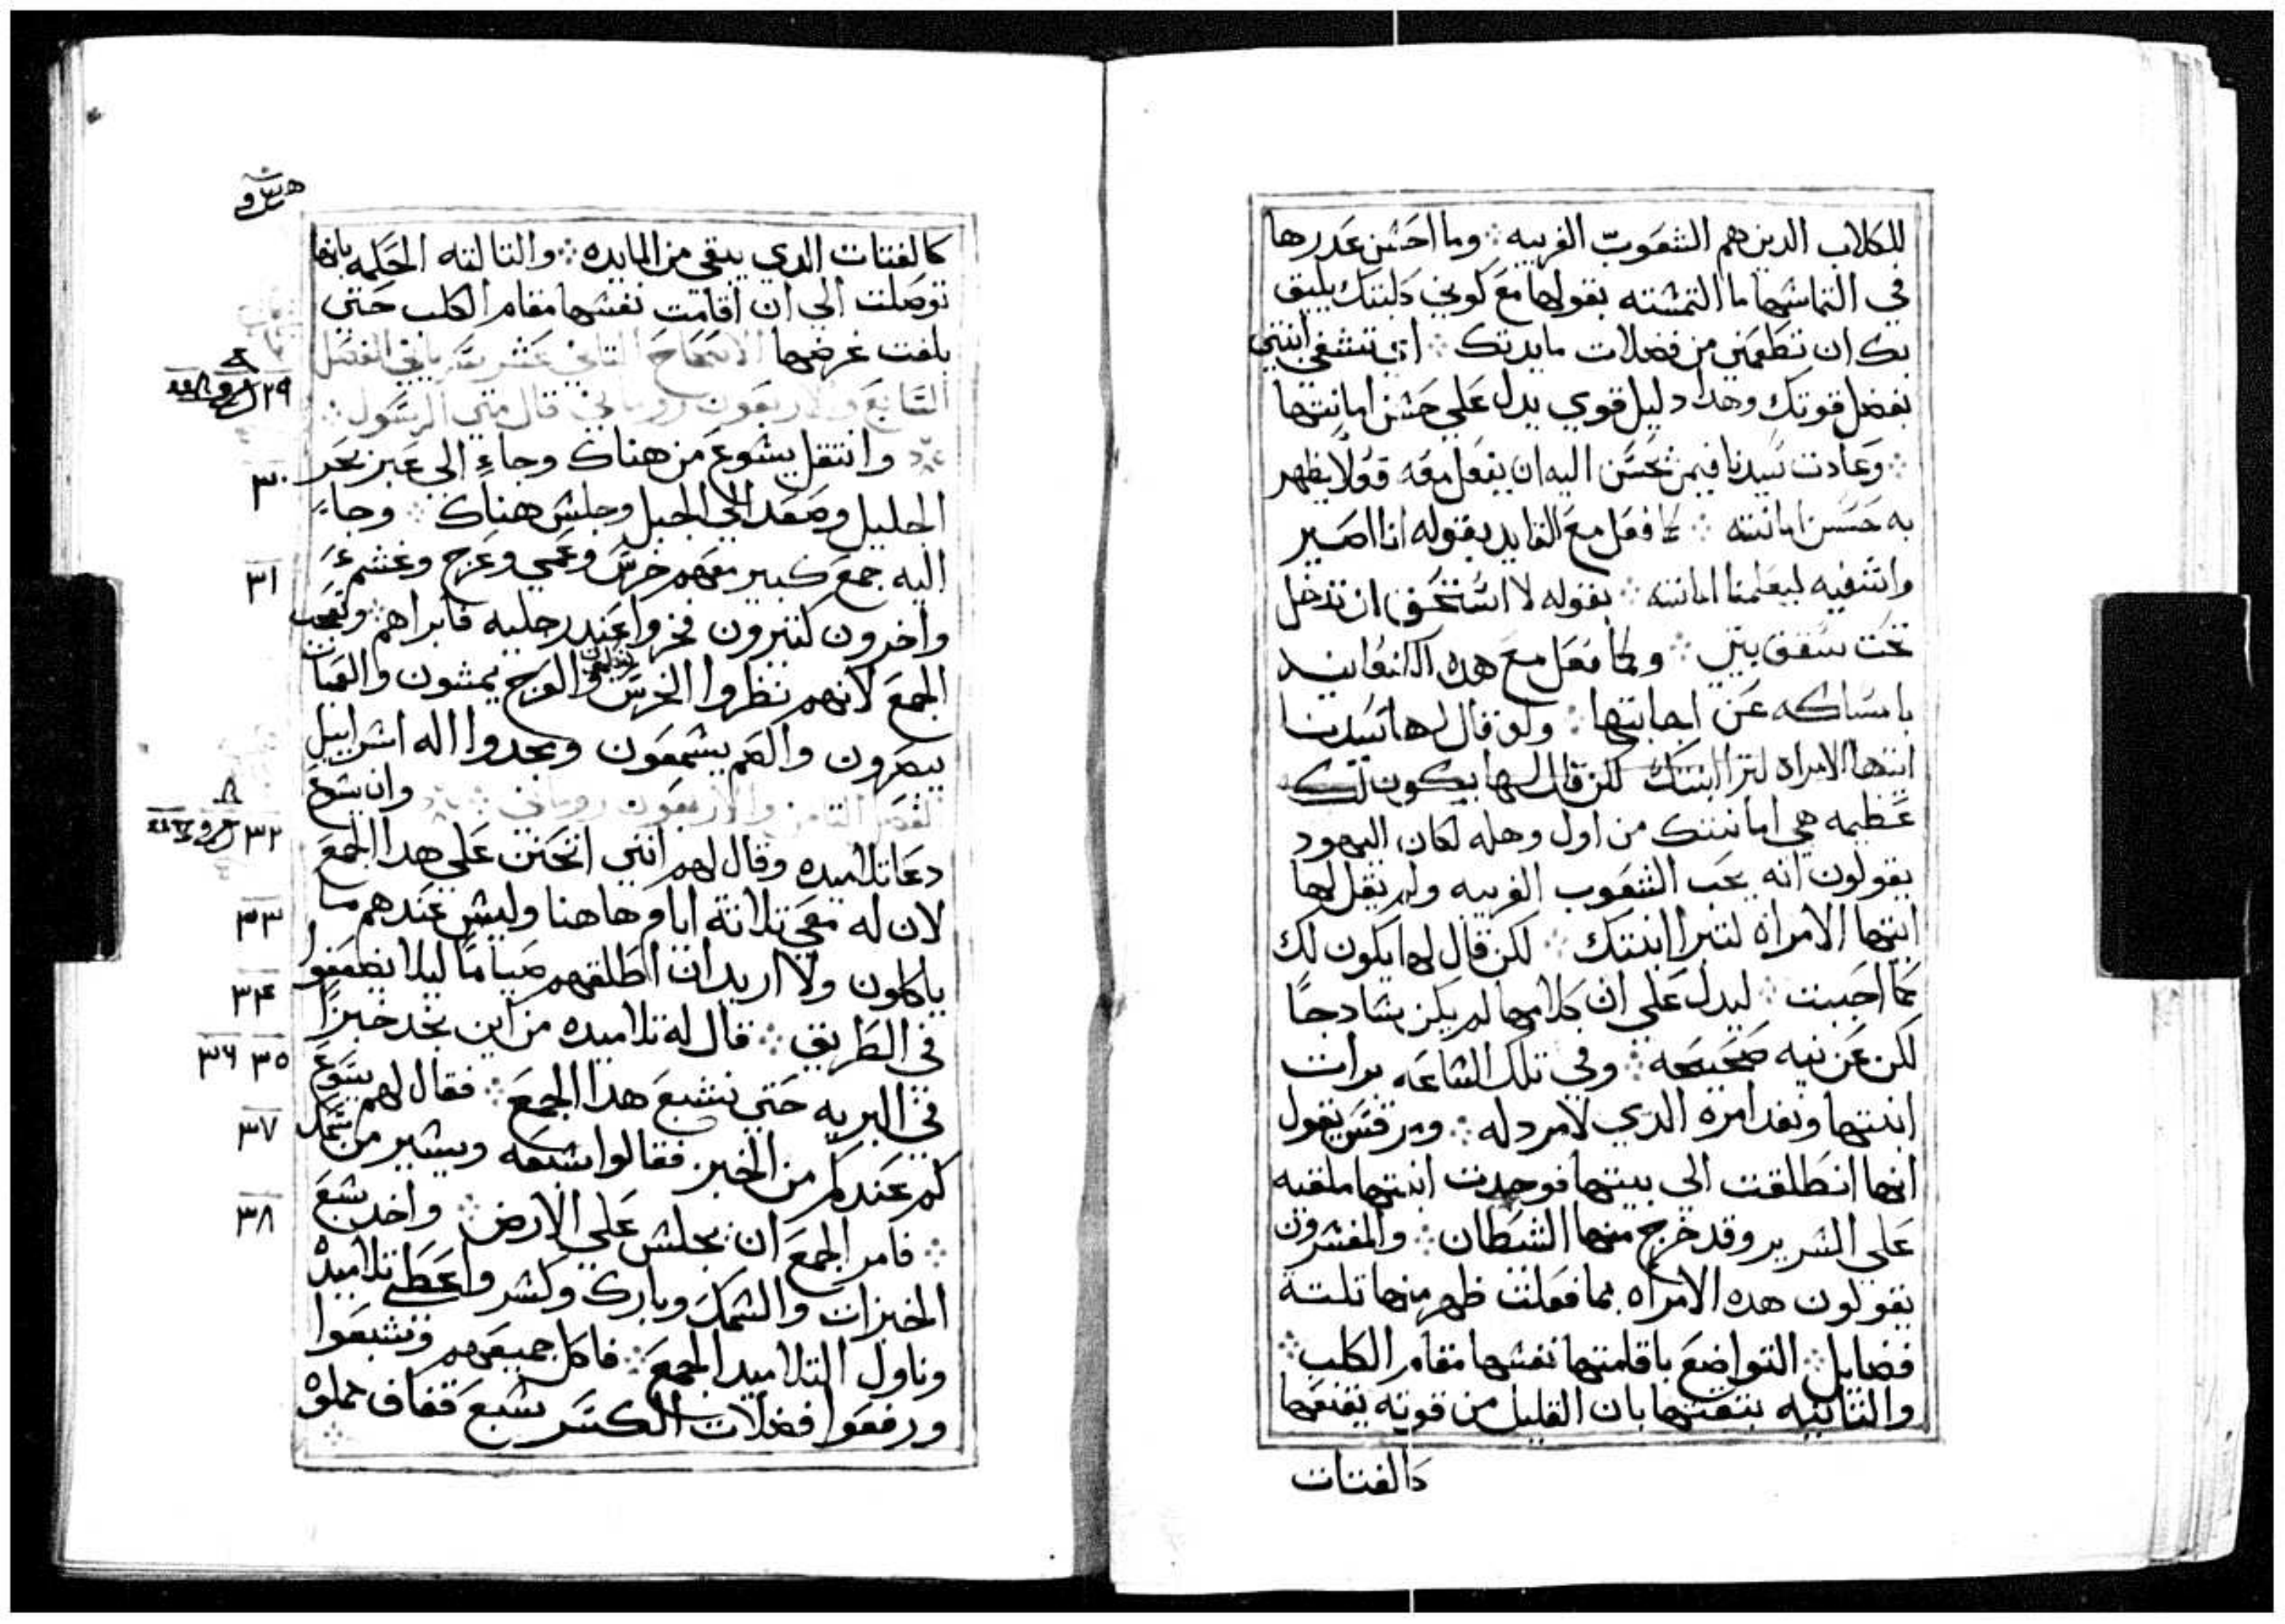 للكلاب الدين هم الشعوب الغريبه ⁘ وما احسن عدرها
في التماسها ما التمسته بقولها مع كوني كلبتك يليق
بك ان تطعمني من فضلات مايدتك ⁘ اي تشفي ابنتي
بفضل قوتك وهدا دليل قوي يدل علي حسن امانتها
⁘ وعادت سيدنا فيمن يحسن اليه ان يفعل معه قولا يظهر
به حسن امانته ⁘ كما فعل مع القايد بقوله انا اصير
واشفيه ليعلمنا امانته ⁘ بقوله لا استحق ان تدخل
تحت سقف بيتي ⁘ وكما فعل مع هده الكنعانيه
بامساكه عن اجابتها ⁘ ولو قال لها سيدنا
ايتها الامراه لتبرا ابنتك لكن قال لها يكون لك
عظيمه هي امانتك من اول وهله لكان اليهود
يقولون انه يحب الشعوب الغريبه ولم يقل لها
ايتها الامراه لتبرا ابنتك ⁘ لكن قال لها يكون لك
كما احببت ⁘ ليدل علي ان كلامها لم يكن سادجا
لكن عن نيه صحيحه ⁘ وفي تلك الساعه برات
ابنتها ونفد امره الدي لا مرد له ⁘ ومرقس يقول
انها انطلقت الي بيتها فوجدت ابنتها ملقيه
علي السرير وقد خرج منها الشطان ⁘ والمفسرون
يقولون هده الامراه بما فعلت ظهر منها تلتة
فضايل ⁘ التواضع باقامتها نفسها مقام الكلب ⁘
والتانيه بثقتها بان القليل من قوته يقنعها
كالفتات
كالفتات الدي يبقي من المايده ⁘ والتالته الحكمه بانها
توصلت الي ان اقامت نفسها مقام الكلب حتي
بلغت غرضها الاصحاح التاني عشر
السابع والاربعون روماني قال متي الرسول
٢٩
وانتقل يسوع من هناك وجاء الي عبر بحر
٣٠
الجليل وصعد الي الجبل وجلس هناك ⁘ وجاء
اليه جمع كبير معهم خرس وعمي وعرج وعسم
٣١
واخرون كتيرون فخروا عند رجليه فابراهم ⁘ وتعجب
الجمع لانهم نظروا الخرس يتكلمون والعرج يمشون والعميان
يبصرون والصم يسمعون ومجدوا اله اسراييل
الفصل التامن والاربعون روماني ⁘ وان يسوع
٣٢
دعا تلاميده وقال لهم انني اتحنن علي هدا الجمع
لان له معي تلاتة ايام هاهنا وليس عندهم ما
٣٣
ياكلون ولا اريد ان اطلقهم صياما ليلا يضعفوا
٣٤
في الطريق ⁘ قال له تلاميده من اين نجد خبزا
٣٥ ٣٦
في البريه حتي نشبع هدا الجمع ⁘ فقال لهم يسوع
كم عندكم من الخبز فقالوا سبعه ويسير من سمك
٣٧
⁘ فامر الجمع ان يجلس علي الارض ⁘ واخد سبع
٣٨
الخبزات والسمك وبارك وكسر واعطي تلاميده
وناول التلاميد الجمع ⁘ فاكل جميعهم وشبعوا
ورفعوا فضلات الكسر سبع قفاف مملوه